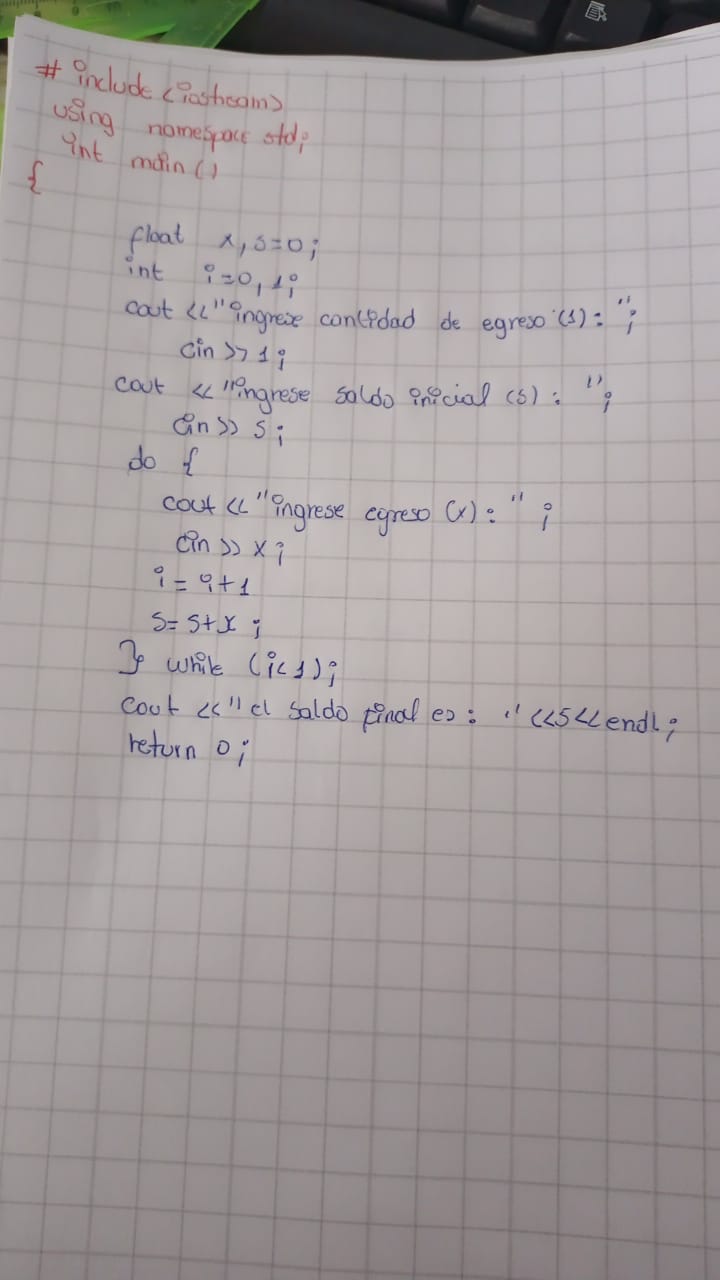 # include <iostream>
using namespace std;
int main()
{
float x, s=0;
int i=0, 1;
cout <<"ingrese cantidad de egreso (1): ";
cin >> 1;
cout <<"ingrese saldo inicial (s): ";
cin >> s;
do {
cout <<"ingrese egreso (x): ";
cin >> x;
i = i+1
s= s+x;
} while (i<1);
cout <<" el saldo final es: "<<s<<endl;
return 0;